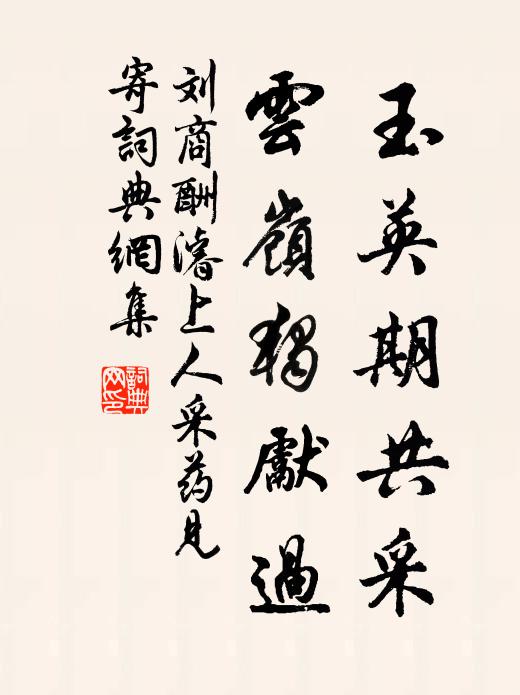 玉英期共采
雲嶺獨獻過
刘商酬濬上人采药見
寄詞典網集
詞典
网印